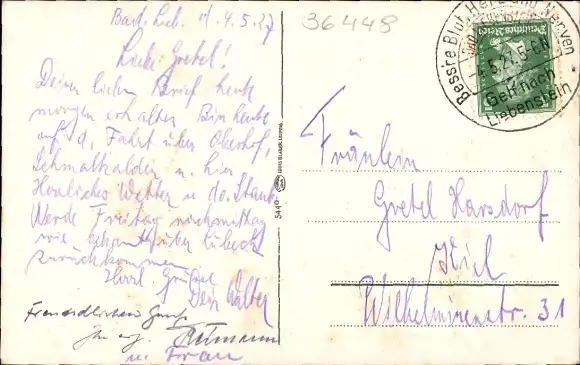 Bad. Lieb. d. 4.5.27
Liebe Gretel!
Deinen lieben Brief heute
morgen erhalten. Bin heute
auf d. Fahrt über Oberhof,
Schmalkalden u. hier
Herrliches Wetter u. do. Staub
Werde Freitag nachmittag
wie gehabt über Lübeck
zurückkommen.
Herzl. Grüße
Dein Walter
Freundlichen Gruß
u. Frau
36448
544°
Bessre Blut, Herz und Nerven
4.5.27. 5-6 N
Geh nach
Liebenstein
Deutsches Reich
Fräulein
Gretel Harsdorf
Kiel
Wilhelminenstr. 31